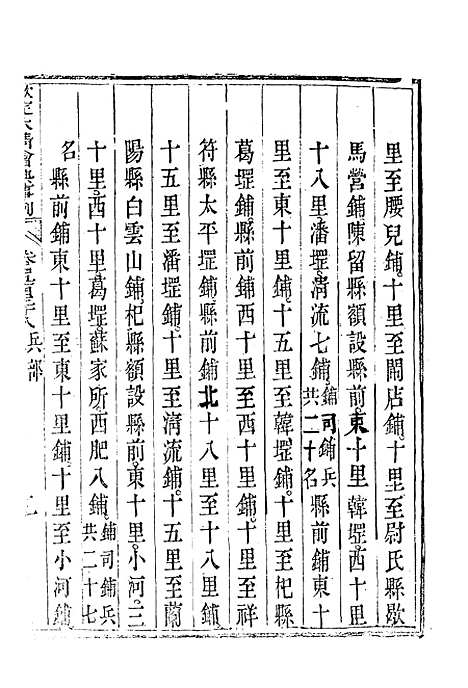 里至腰兒鋪。十里至閙店鋪。十里至尉氏縣歇
馬營鋪。陳留縣額設縣前。東十里韓堽。西十里
十八里潘堽。清流七鋪。鋪司鋪兵共二十名縣前鋪東十
里至東十里鋪。十五里至韓堽鋪。十里至杞縣
葛堽鋪。縣前鋪西十里至西十里鋪。十里至祥
符縣太平堽鋪。縣前鋪北十八里至十八里鋪。
十五里至潘堽鋪。十里至清流鋪。十五里至蘭
陽縣白雲山鋪。杞縣額設縣前。東十里。小河。三
十里。西十里。葛堽。蘇家所。西肥八鋪。鋪司鋪兵共二十七
名縣前鋪東十里至東十里鋪。十里至小河鋪
欽定大清會典事例 兵部